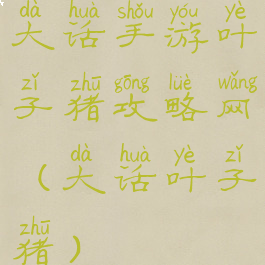 dà huà shǒu yóu yè
大话手游叶
zǐ zhū gōng lüè wǎng
子猪攻略网
dà huà yè zǐ
（大话叶子
zhū
猪）